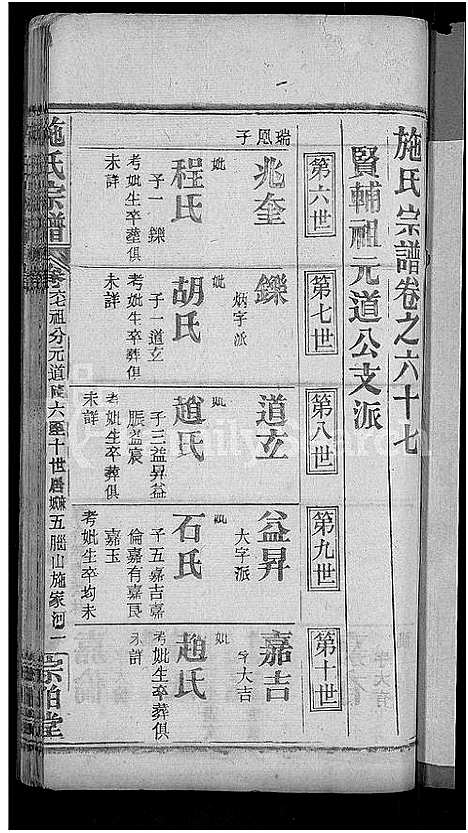 施氏宗譜卷之六十七
賢輔祖元道公支派
第六世
第七世
第八世
第九世
第十世
瑞凰子
兆奎
妣
程氏
子一 鑠
考妣生卒葬俱
未詳
鑠
炳字派
妣
胡氏
子一道立
考妣生卒葬俱
未詳
道立
妣
趙氏
子三益昇益
賬益宸
考妣生卒葬俱
未詳
益昇
大字派
妣
石氏
子五嘉吉嘉
倫嘉有嘉良
嘉玉
考妣生卒均未
嘉吉
字大吉
妣
趙氏
考妣生卒葬俱
未詳
施氏宗譜
祖分元道
六至十世居麻
五腦山施家河
一
宗伯堂
FamilySearch